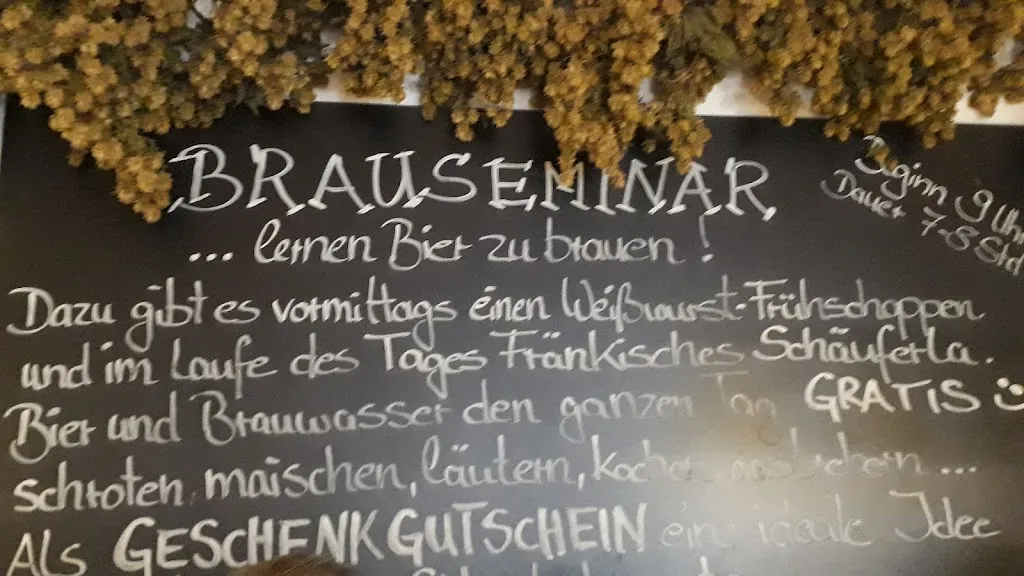 BRAUSEMINAR
... lernen Bier zu brauen!
Beginn 9 Uhr
Dauer 7-8 Std
Dazu gibt es vormittags einen Weißwurst-Frühschoppen
und im Laufe des Tages Fränkisches Schäuferla.
Bier und Brauwasser den ganzen Tag GRATIS
schroten, maischen, läutern, kochen, ...
Als GESCHENKGUTSCHEIN eine ideale Idee